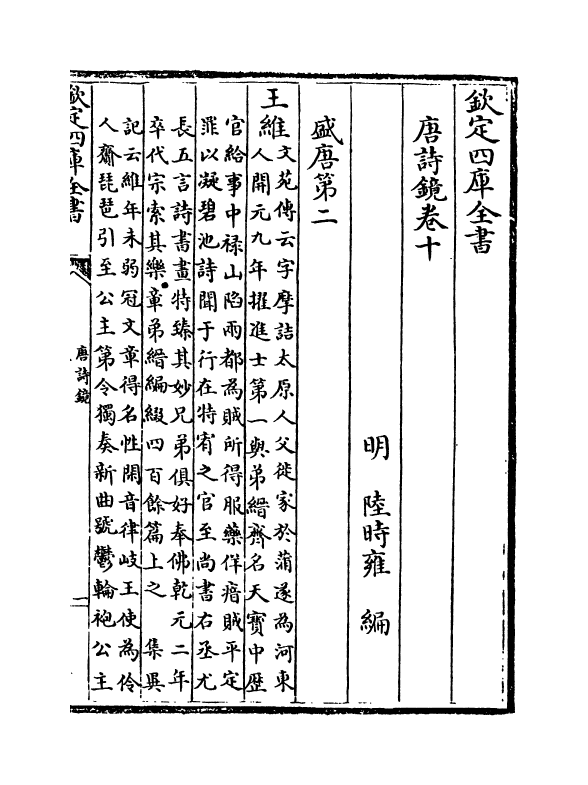 欽定四庫全書
唐詩鏡卷十
明　陸時雍　編
盛唐第二
王維
文苑傳云字摩詰太原人父徙家於蒲遂為河東
人開元九年擢進士第一與弟縉齊名天寶中歷
官給事中祿山陷兩都為賊所得服藥佯瘖賊平定
罪以凝碧池詩聞于行在特宥之官至尚書右丞尤
長五言詩書畫特臻其妙兄弟俱好奉佛乾元二年
卒代宗索其樂章弟縉編綴四百餘篇上之　集異
記云維年未弱冠文章得名性閑音律岐王使為伶
人齎琵琶引至公主第令獨奏新曲號鬱輪袍公主
欽定四庫全書
唐詩鏡